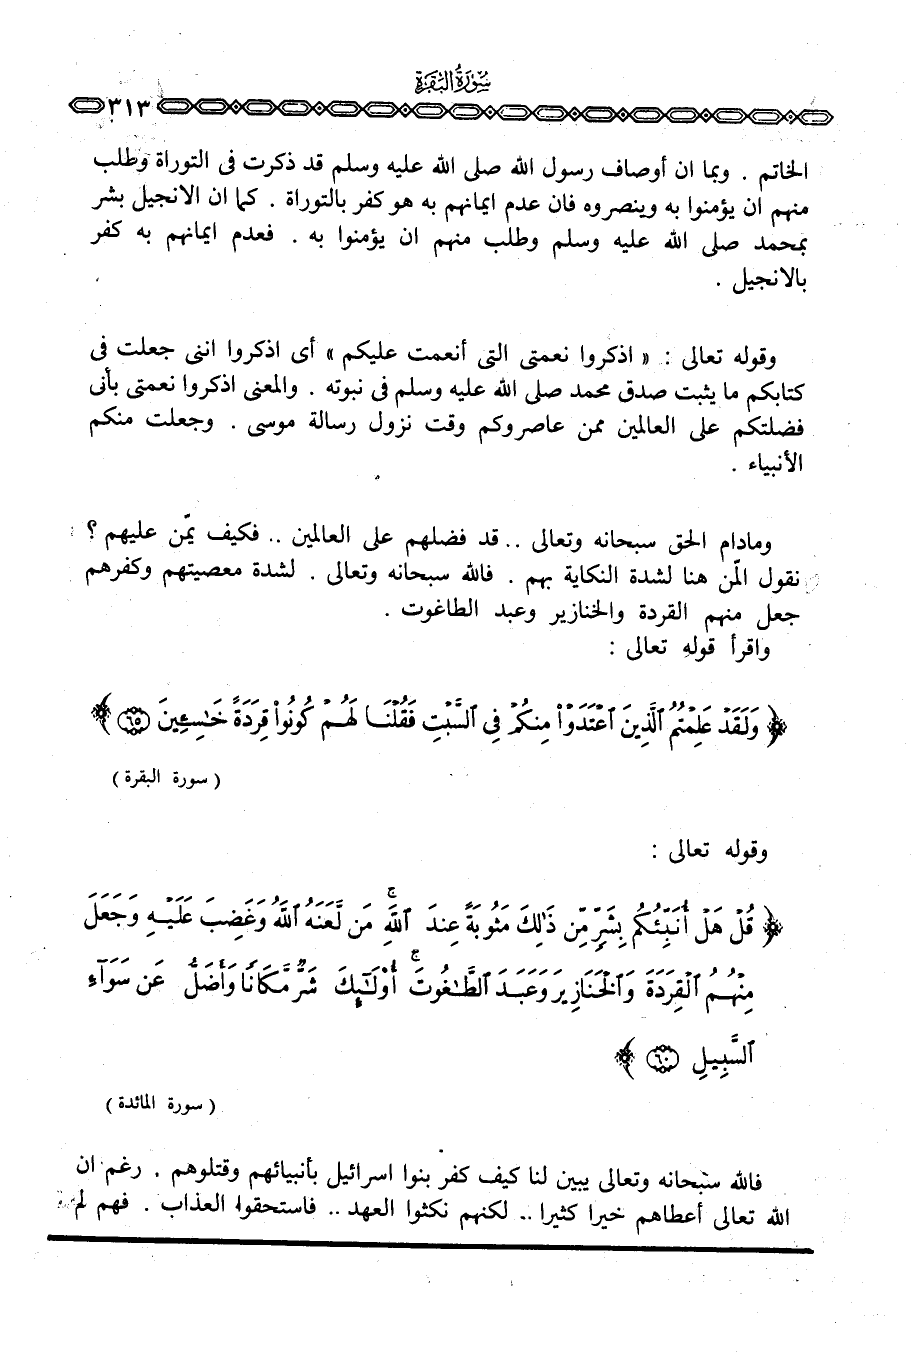 سورة البقرة
٣١٣
الخاتم . وبما ان أوصاف رسول الله صلى الله عليه وسلم قد ذكرت فى التوراة وطلب
منهم ان يؤمنوا به وينصروه فان عدم ايمانهم به هو كفر بالتوراة . كما ان الانجيل بشر
بمحمد صلى الله عليه وسلم وطلب منهم ان يؤمنوا به . فعدم ايمانهم به كفر
بالانجيل .
وقوله تعالى : « اذكروا نعمتى التى أنعمت عليكم » أى اذكروا اننى جعلت فى
كتابكم ما يثبت صدق محمد صلى الله عليه وسلم فى نبوته . والمعنى اذكروا نعمتى بأنى
فضلتكم على العالمين ممن عاصروكم وقت نزول رسالة موسى . وجعلت منكم
الأنبياء .
ومادام الحق سبحانه وتعالى .. قد فضلهم على العالمين .. فكيف يمّن عليهم ؟
نقول المّن هنا لشدة النكاية بهم . فالله سبحانه وتعالى . لشدة معصيتهم وكفرهم
جعل منهم القردة والخنازير وعبد الطاغوت .
واقرأ قوله تعالى :
﴿ وَلَقَدْ عَلِمْتُمُ ٱلَّذِينَ ٱعْتَدَوْا۟ مِنكُمْ فِى ٱلسَّبْتِ فَقُلْنَا لَهُمْ كُونُوا۟ قِرَدَةً خَـٰسِـِٔينَ ٦٥ ﴾
( سورة البقرة )
وقوله تعالى :
﴿ قُلْ هَلْ أُنَبِّئُكُم بِشَرٍّ مِّن ذَٰلِكَ مَثُوبَةً عِندَ ٱللَّهِ ۚ مَن لَّعَنَهُ ٱللَّهُ وَغَضِبَ عَلَيْهِ وَجَعَلَ
مِنْهُمُ ٱلْقِرَدَةَ وَٱلْخَنَازِيرَ وَعَبَدَ ٱلطَّـٰغُوتَ ۚ أُو۟لَـٰٓئِكَ شَرٌّ مَّكَانًا وَأَضَلُّ عَن سَوَآءِ
ٱلسَّبِيلِ ٦٠ ﴾
( سورة المائدة )
فالله سبحانه وتعالى يبين لنا كيف كفر بنوا اسرائيل بأنبيائهم وقتلوهم . رغم ان
الله تعالى أعطاهم خيرا كثيرا .. لكنهم نكثوا العهد .. فاستحقوا العذاب . فهم لم